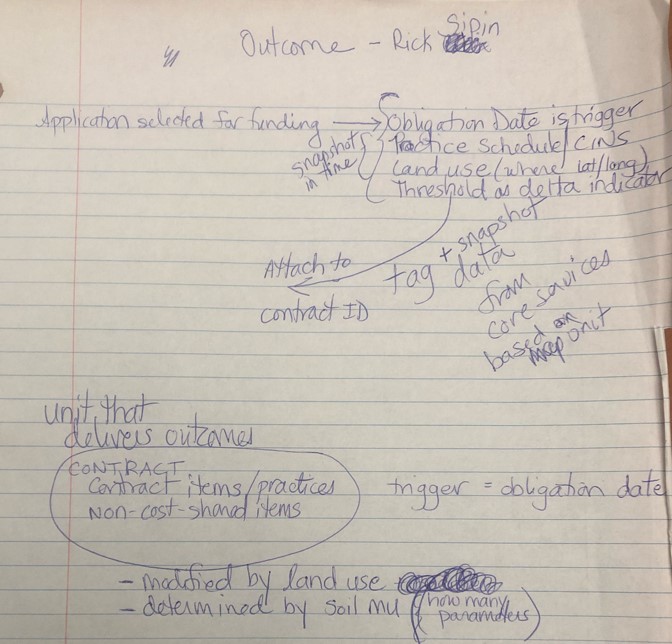 Outcome - Rick Sipin
Application selected for funding → Obligation Date is trigger
Practice Schedule / CINS
Land use (where lat/long)
Threshold as delta indicator
snapshots
in time
Attach to
contract ID
tag + snapshot
data
from
core services
based on
map unit
unit that
delivers outcomes
CONTRACT
Contract items/practices
Non-cost-shared items
trigger = obligation date
- modified by land use
- determined by soil mu (how many
parameters)